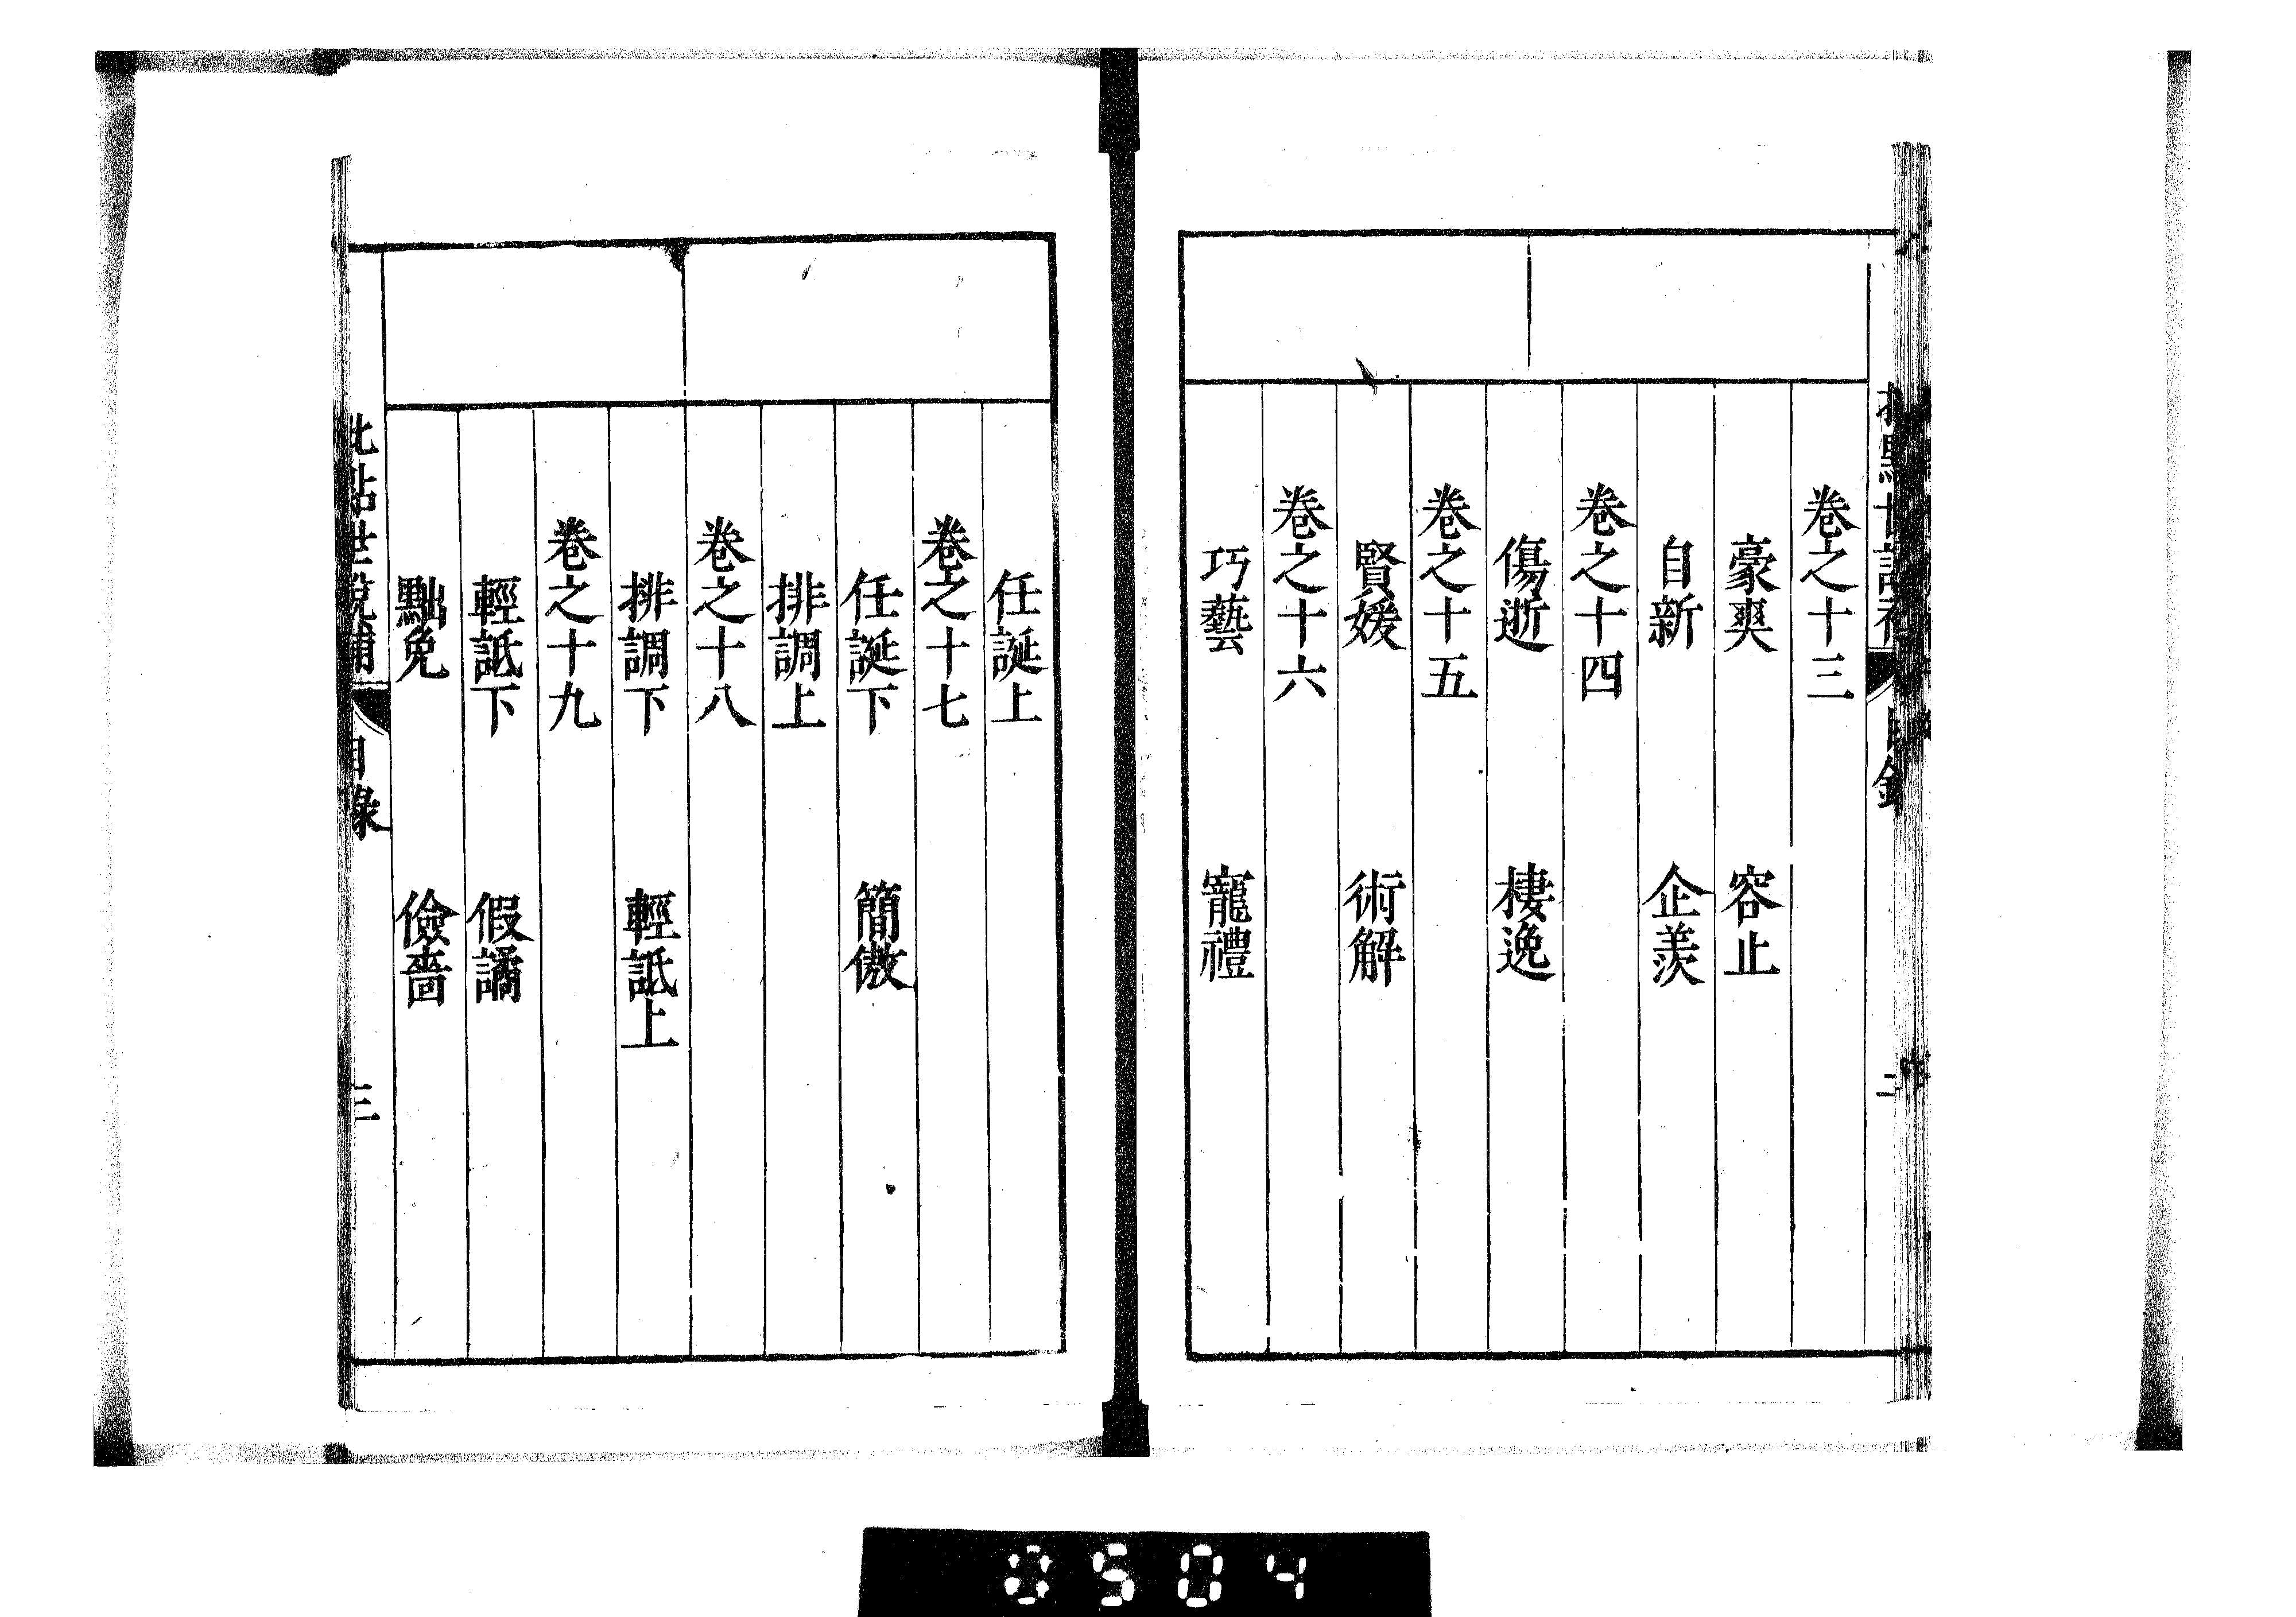 卷之十三
豪爽 容止
自新 企羨
卷之十四
傷逝 棲逸
卷之十五
賢媛 術解
卷之十六
巧藝 寵禮
任誕上
卷之十七
任誕下 簡傲
排調上
卷之十八
排調下 輕詆上
卷之十九
輕詆下 假譎
黜免 儉嗇
批點世說補 目錄 三
0504